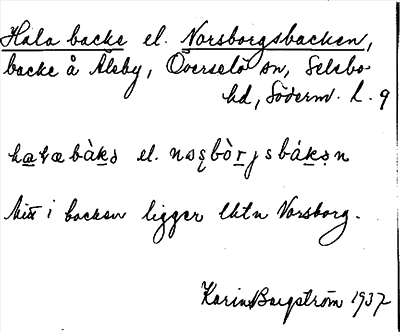 Hala backe el. Norsborgsbacken,
backe å Åleby, Överselö sn, Selebo
hd, Söderm. L. 9
el.
Mitt i backen ligger lhtn Norsborg.
Karin Bergström 1937